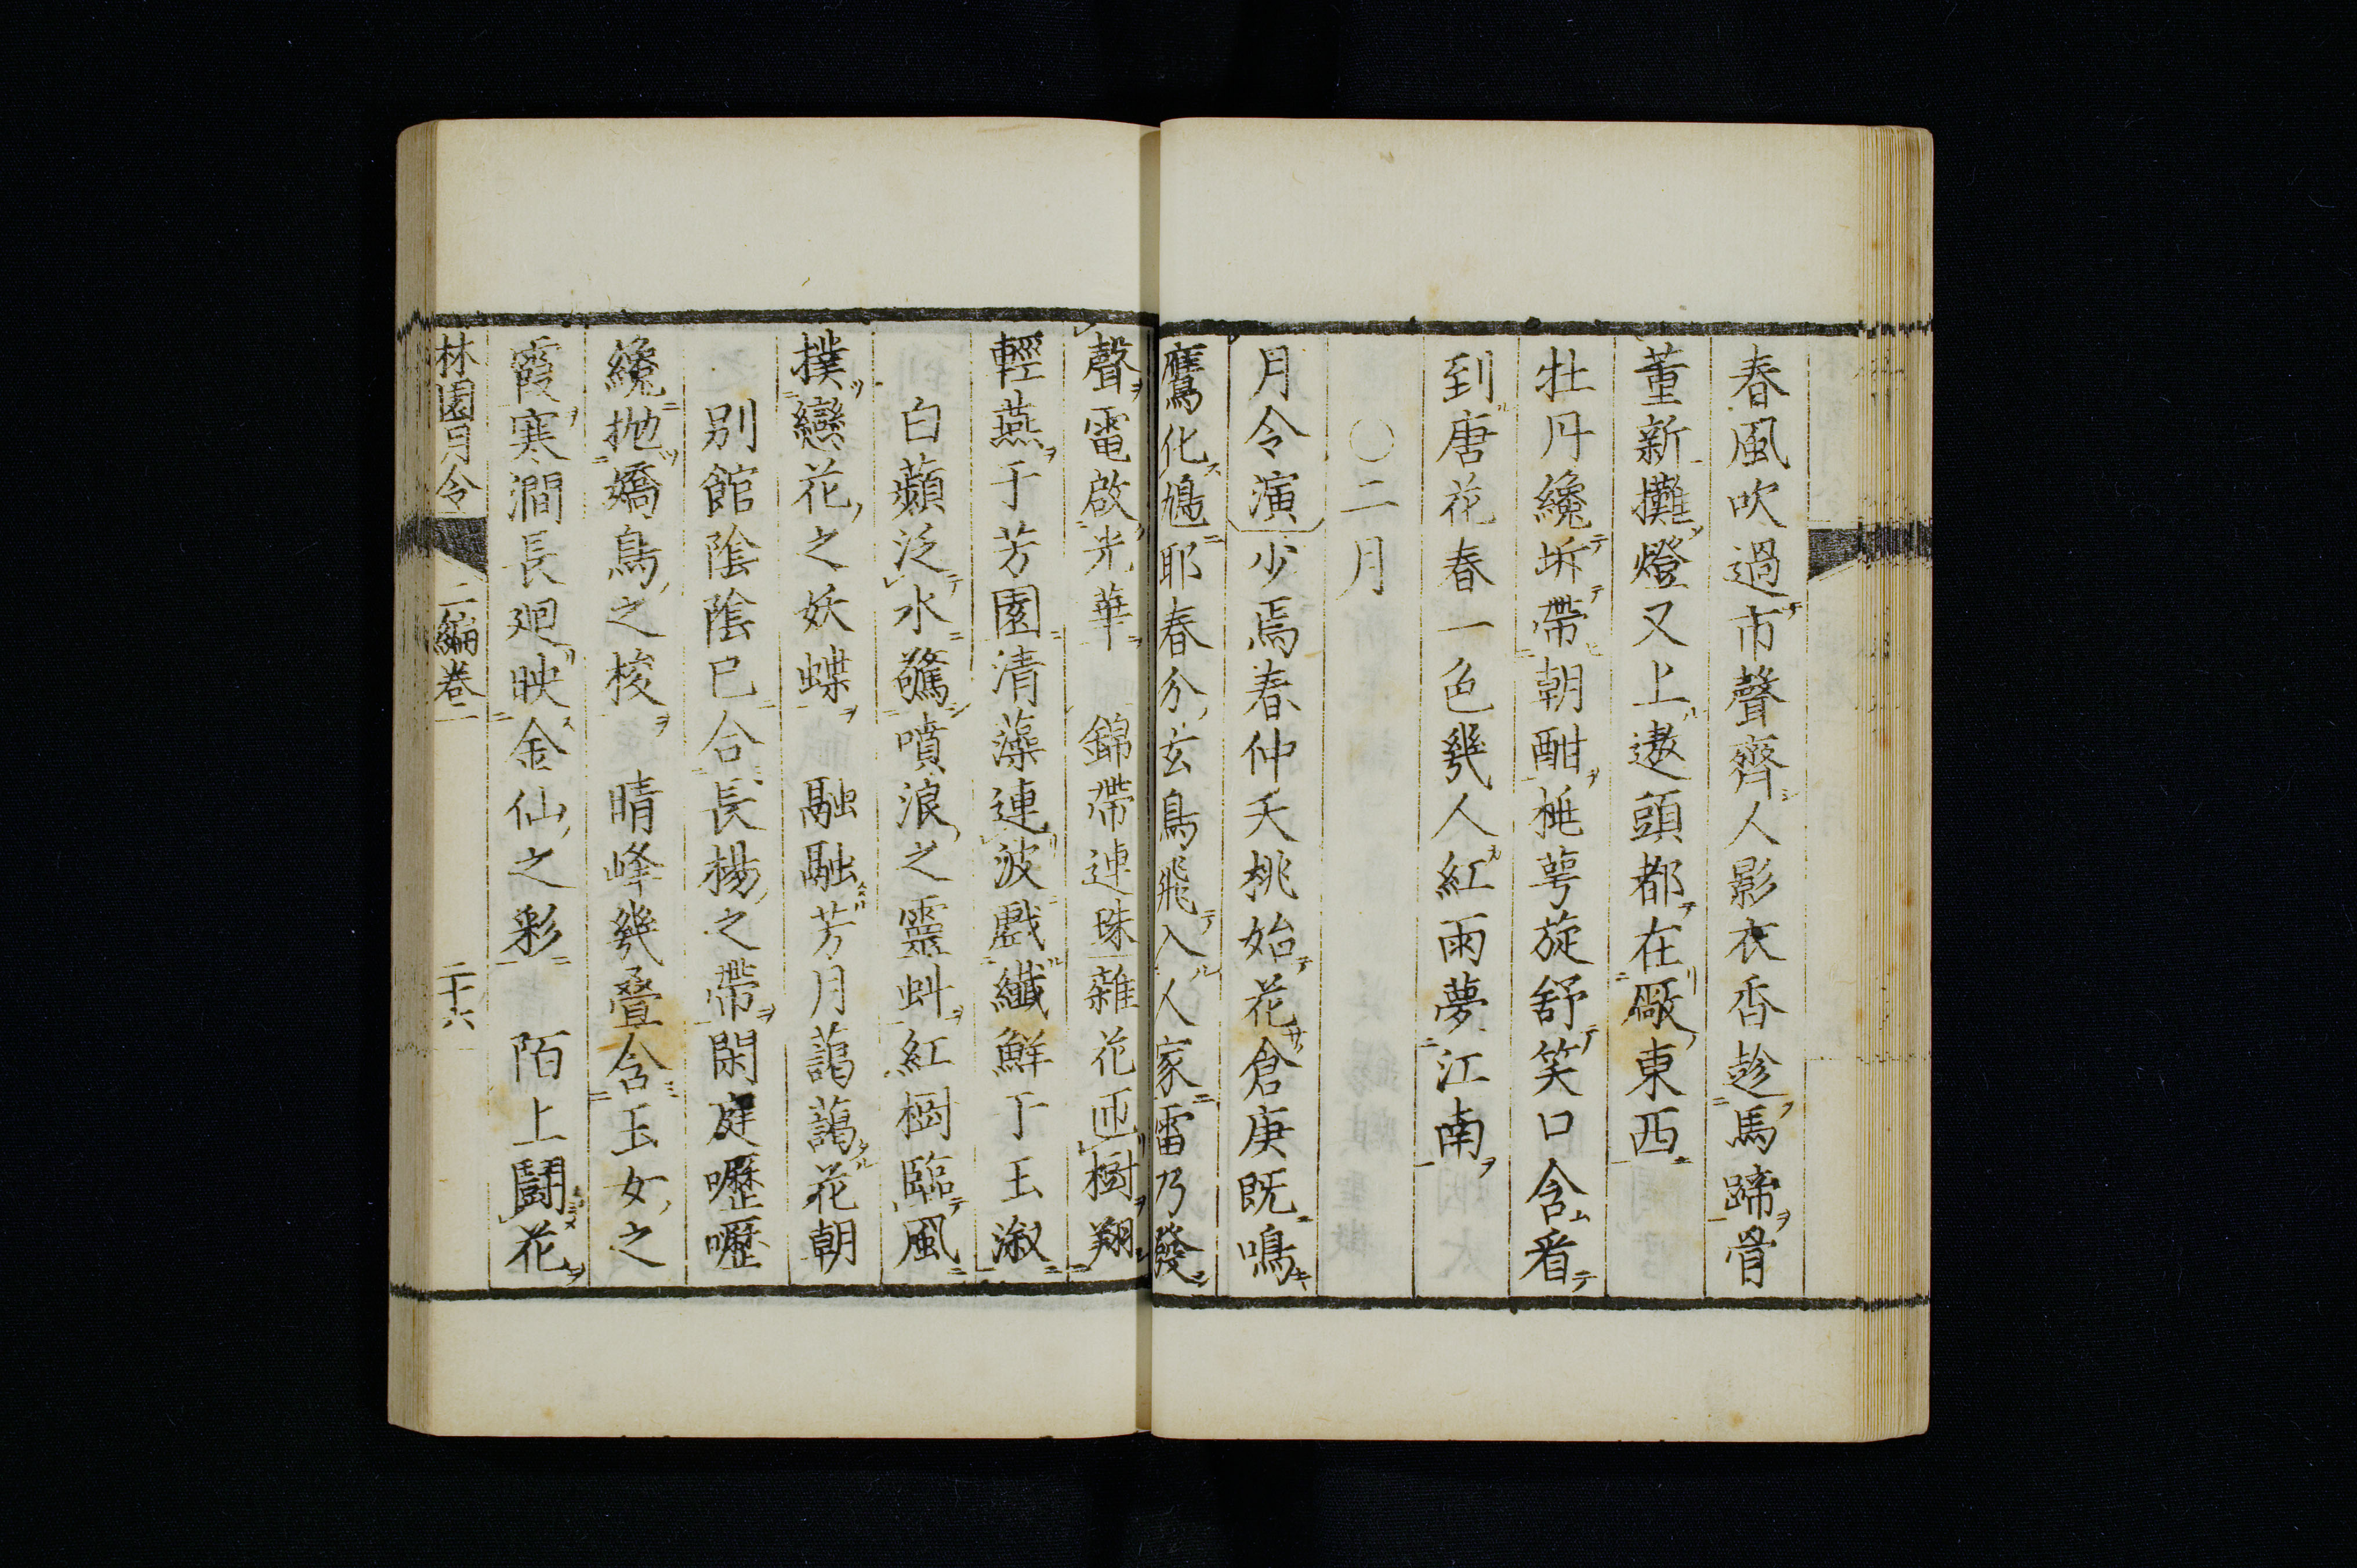 春風吹過市聲齊人影衣香趁馬蹄骨
董新攤燈又上遨頭都在廠東西
牡丹纔坼帶朝酣桃萼旋舒笑口含看
到唐花春一色幾人紅雨夢江南
〇二月
月令演少焉春仲夭桃始花倉庚既鳴
鷹化鳩耶春分玄鳥飛入人家雷乃發
聲電啟光華 錦帶連珠雜花匝樹翔
輕燕于芳園清藻連波戲纖鮮于玉漵
白蘋泛水驚噴浪之靈虯紅樹臨風
撲戀花之妖蝶 融融芳月藹藹花朝
別館陰陰已合長楊之帶閑庭嚦嚦
纔拋嬌鳥之梭 晴峰幾疊含玉女之
霞寒澗長迴映金仙之彩 陌上鬪花
林園月令 二編卷二 二十六